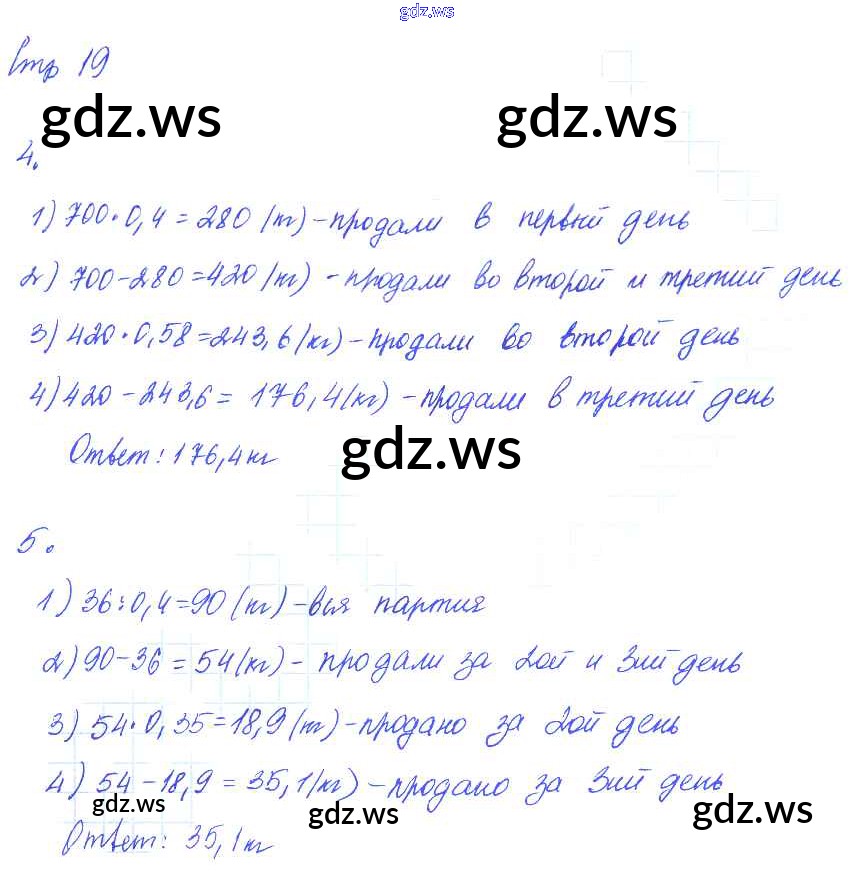 gdz.ws
Стр 19
gdz.ws gdz.ws
4.
1) 700·0,4=280 (кг)-продали в первый день
2) 700-280=420 (кг) - продали во второй и третий день
3) 420·0,58=243,6 (кг)-продали во второй день
4) 420-243,6= 176,4(кг) -продали в третий день
Ответ: 176,4 кг
gdz.ws
5.
1) 36:0,4=90 (кг)-вся партия
2) 90-36 = 54 (кг) - продали за 2ой и 3ий день
3) 54·0,35=18,9 (кг)-продано за 2ой день
4) 54-18,9 = 35,1(кг) - продано за 3ий день
gdz.ws gdz.ws gdz.ws
Ответ: 35,1 кг